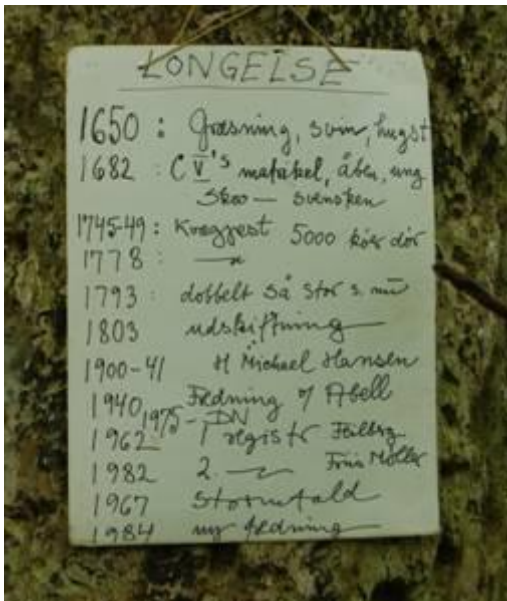 LONGELSE
1650 : Græsning, svin, hugst
1682 : C V's matrikel, åben, ung
Skov — svensken
1745-49 : Kvægpest 5000 køer dør
1778 : —"—
1793 : dobbelt så stor s. nu
1803 udskiftning
1900-41 H Michael Hansen
1940 Fredning v/ Abell
1975 - DN
1962 1 registr Følberg
1982 2. —"— Friis Møller
1967 Stormfald
1984 ny fredning